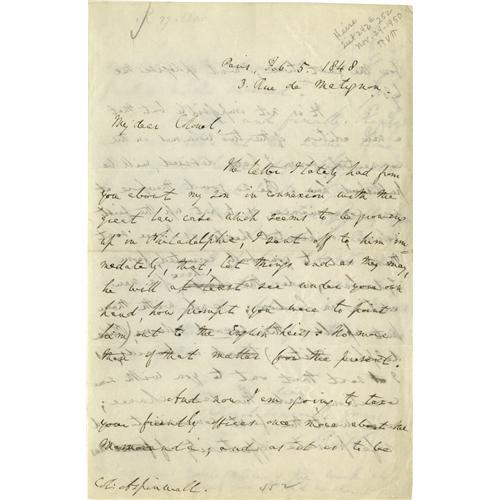 Hume
Nov. 29. 1950
Paris, Feb. 5. 1848
3. Rue de Matignon.
My dear Colonel,
The letter I lately had from
you about my son in connexion with the
great law case which seems to be growing
up in Philadelphia, I sent off to him im-
mediately, that, let things end as they may,
he will at least see under your own
hand, how prompt you were to point
him out to the English heirs. No more
than of that matter for the present.
And now I am going to tax
your friendly offices once more about the
Memoranda; and as it is to be
Col: Aspinwall.